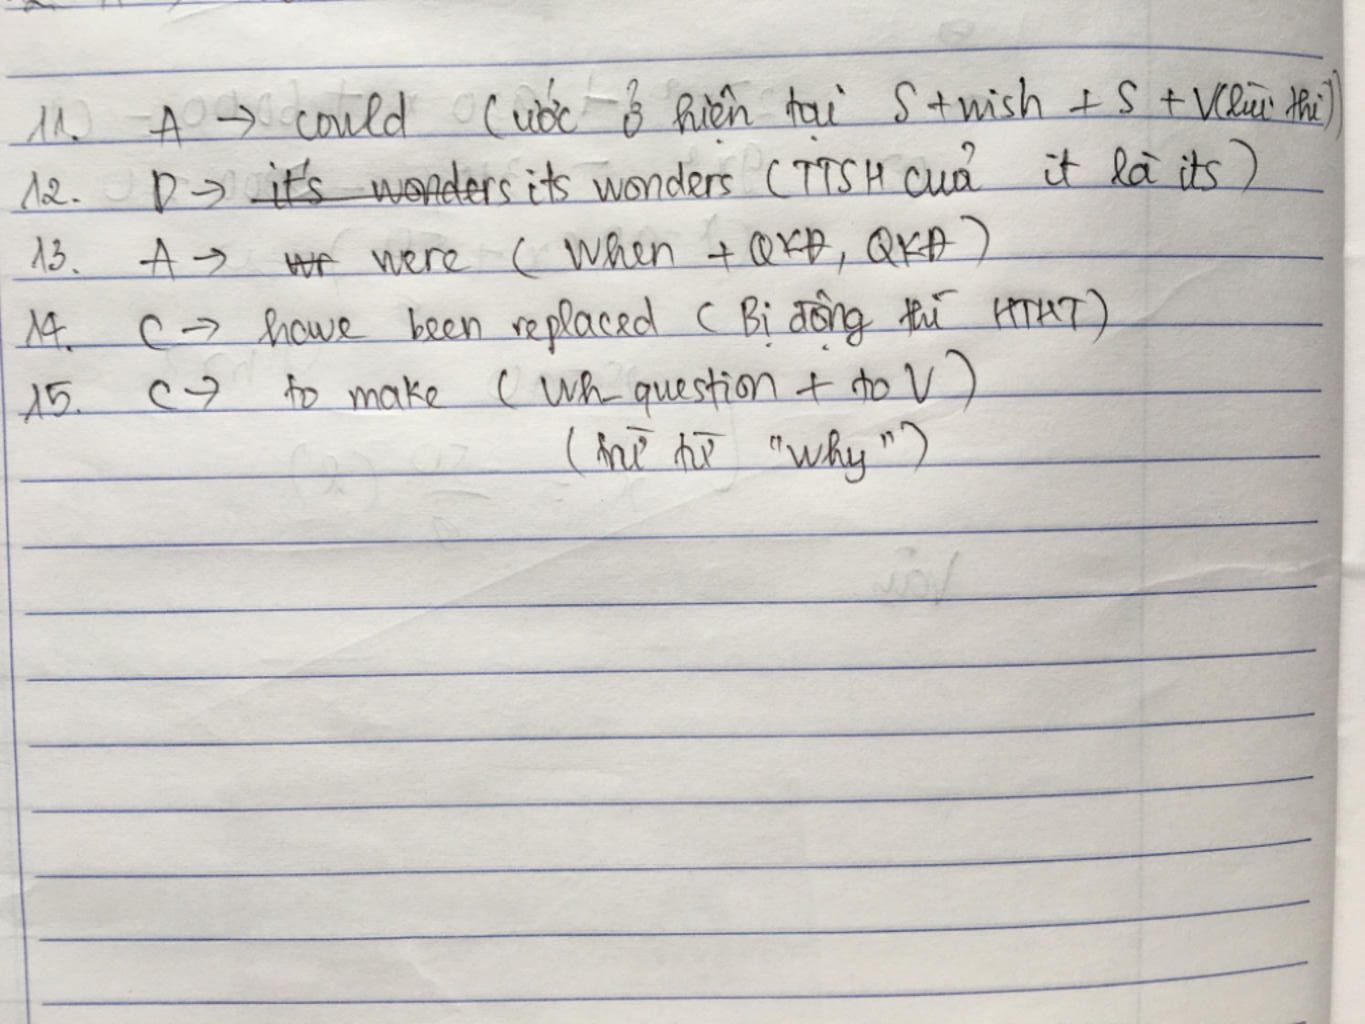 11. A → could (ước ở hiện tại S + wish + S + V(lùi thì))
12. D → it's wonders its wonders (TTSH cuả it là its)
13. A → wr were (When + QKĐ, QKĐ)
14. C → have been replaced (Bị động thì HTHT)
15. C → to make (Wh_question + to V)
(trừ từ "why")